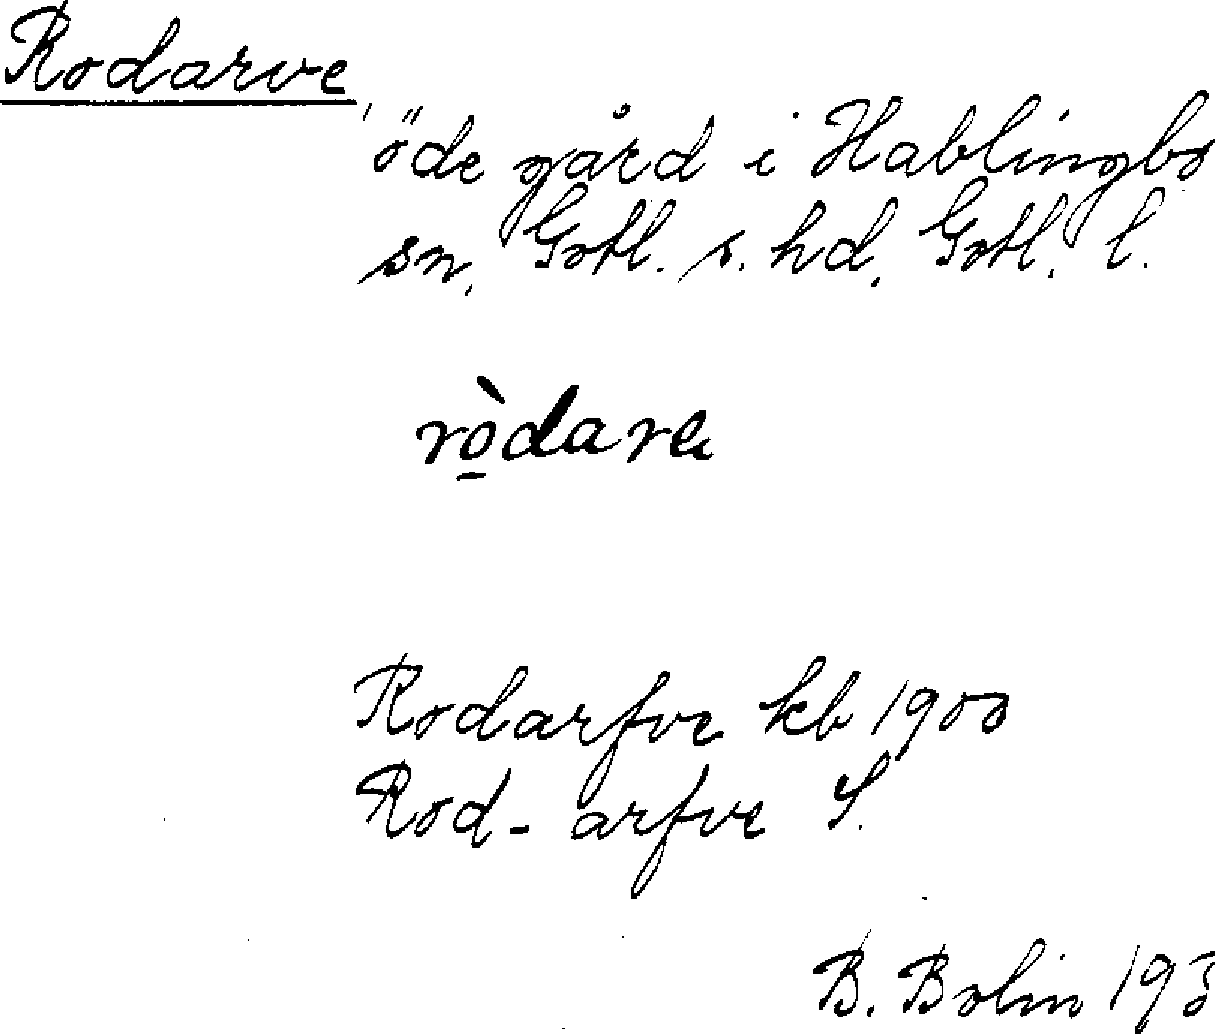 Rodarve
öde gård i Hablingbo
sn, Gotl. s. hd, Gotl. l.
rò̠darvɛ
Rodarfve kb 1900
Rod- arfve S.
B. Bolin 193